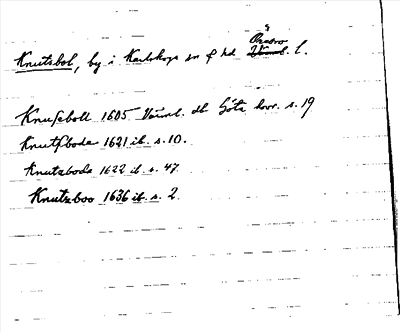 Örebro
Knutsbol, by i Karlskoga sn o hd Värml. l.
Knuseboll 1605 Värml. db Götz hovr. s. 19
Knutzboda 1621 ib. s. 10.
Knutzboda 1622 ib. s. 47.
Knutzboo 1636 ib. s. 2.